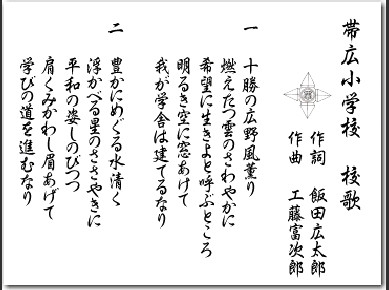 帯広小学校　校歌
作詞　飯田広太郎
作曲　工藤富次郎
一　十勝の広野風薫り
燃えたつ雲のさわやかに
希望に生きよと呼ぶところ
明るき空に窓あけて
我が学舎は建てるなり
二　豊かにめぐる水清く
浮かべる星のささやきに
平和の姿しのびつつ
肩くみかわし眉あげて
学びの道を進むなり